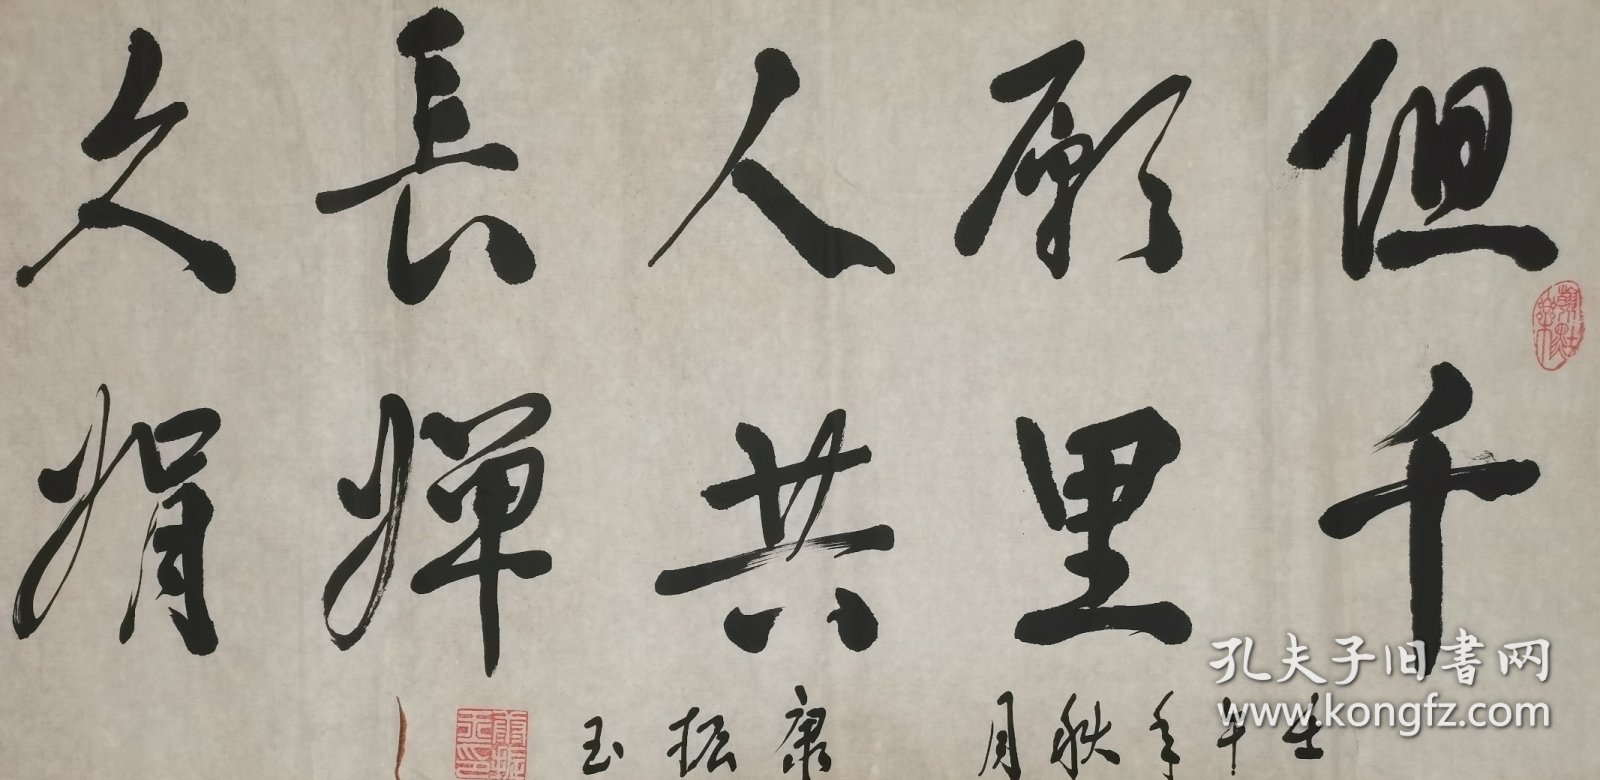 但願人長久
千里共嬋娟
年秋月
康振玉
孔夫子旧书网
www.kongfz.com